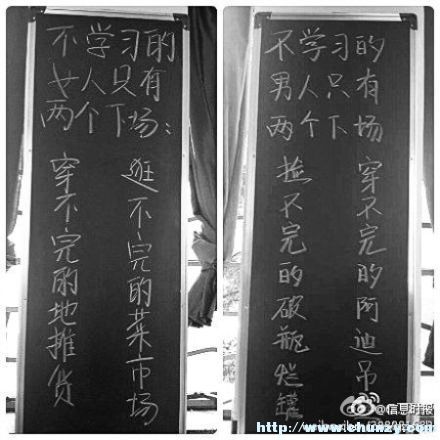 不学习的
女人只有
两个下场：
逛不完的菜市场
穿不完的地摊货
不学习的
男人只有
两个下场
穿不完的阿迪吊
捡不完的破瓶烂罐
@信息时报
http://www.chunzy.com